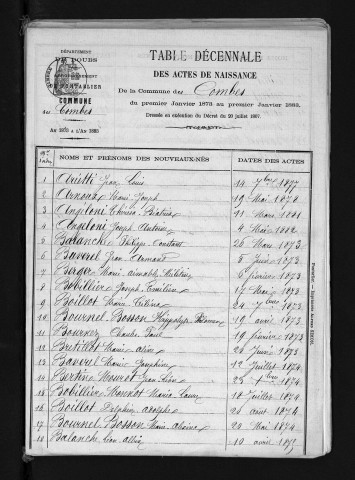 DÉPARTEMENT
DU DOUBS
ARRONDISSEMENT
DE PONTARLIER
COMMUNE
des Combes
AN 1873 A L'AN 1883
TABLE DÉCENNALE
DES ACTES DE NAISSANCE
De la Commune des Combes
du premier Janvier 1873 au premier Janvier 1883,
Dressée en exécution du Décret du 20 juillet 1807.
NOMS ET PRÉNOMS DES NOUVEAUX-NÉS DATES DES ACTES
1 Arietti Jean Louis 14 7bre 1877
2 Arnoux Marie Joseph 19 Mai 1878
3 Angeloni Thérésa 11 Mars 1881
4 Angeloni Joseph 4 Mai 1882
5 Balanche Philippe Constant 26 Mars 1873
6 Baverel Jean Armand 5 Juin 1873
7 Marie 6 février 1873
8 Bobillier Joseph Emilien 17 Mai 1873
9 Boillot Marie 24 7bre 1873
10 Bournel Bosson Hyppolyte 19 avril 1873
11 Charles Paul 19 février 1873
12 Bretillot Marie 28 Juin 1873
13 Marie Joséphine 12 Juillet 1874
14 Bertin Mourot Jean Léon 25 1874
15 Bobillier Monnot Marie Laure 18 Juillet 1874
16 Boillot Delphin adolphe 26 aout 1874
17 Bournel Bosson Marie 20 Mai 1874
18 Balanche Léon 10 avril 1875